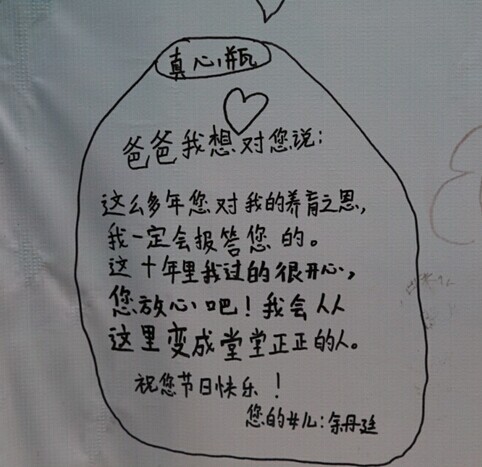 真心瓶
爸爸我想对您说:
这么多年您对我的养育之恩,
我一定会报答您的。
这十年里我过的很开心,
您放心吧!我会从
这里变成堂堂正正的人。
祝您节日快乐!
您的女儿:余丹廷